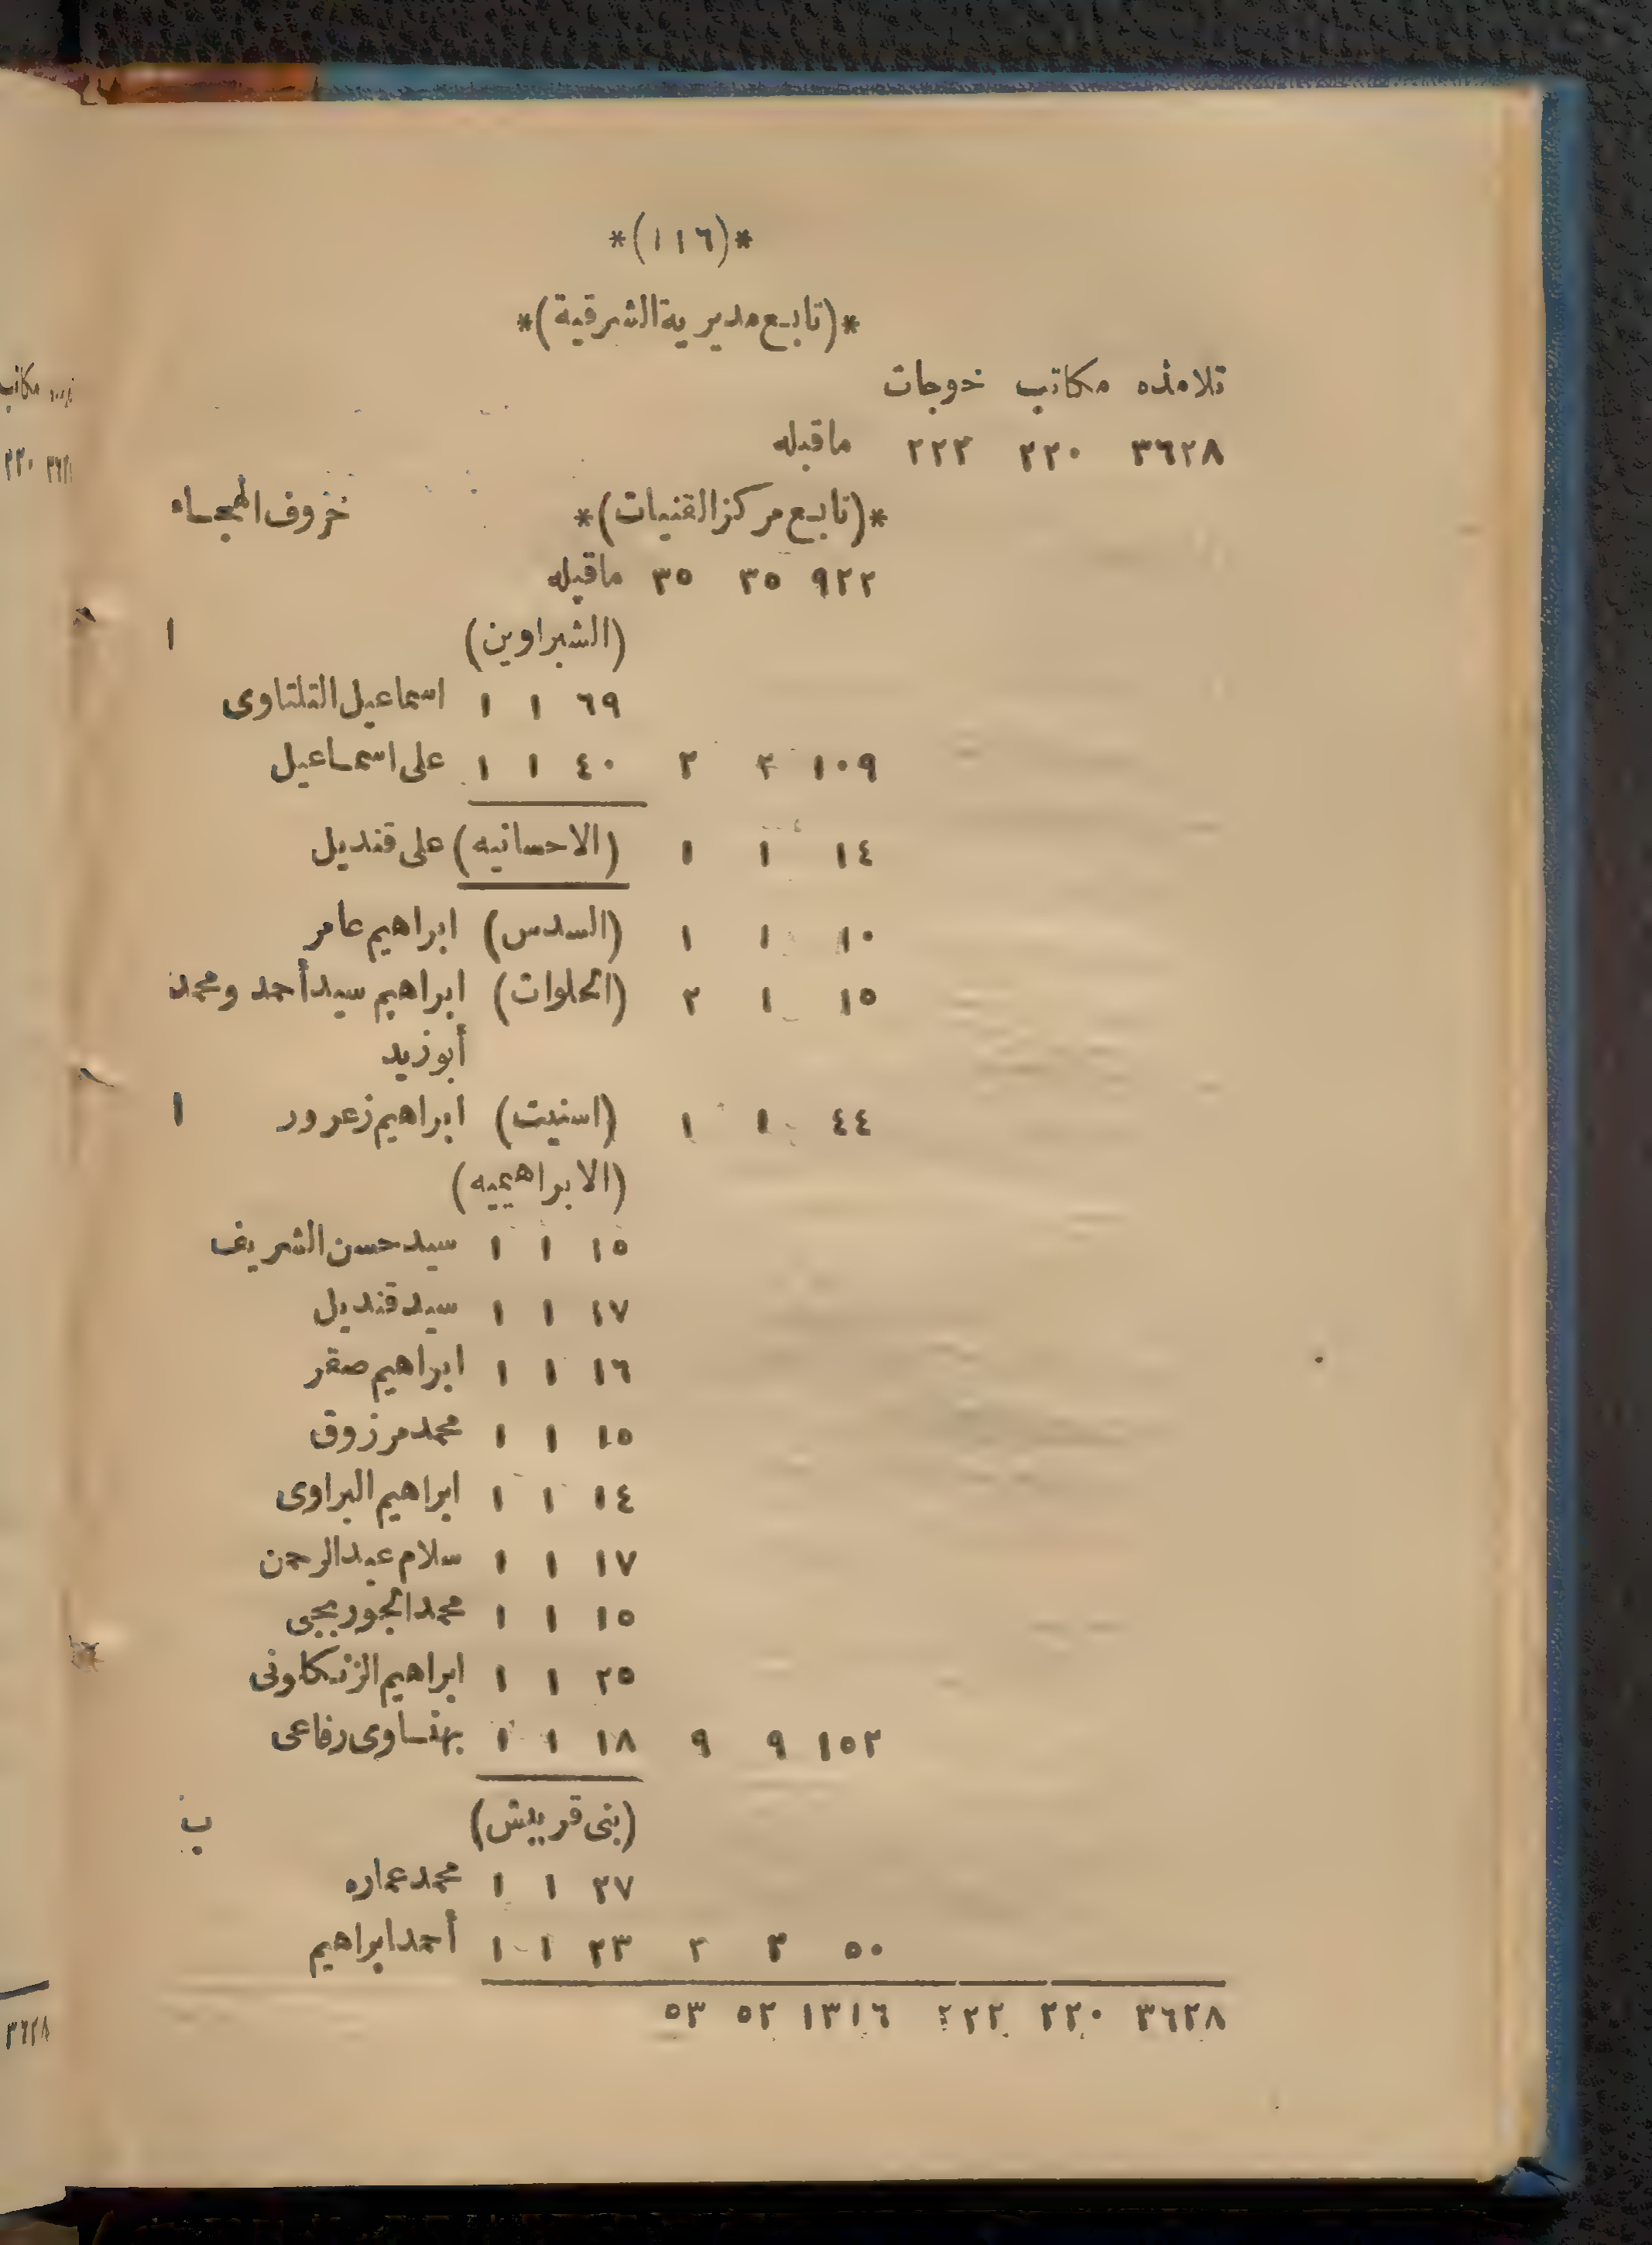 *(١١٦)*
*(تابع مديرية الشرقية)*
تلامذه مكاتب خوجات
٣٦٢٨ ٢٢٠ ٢٢٢ ماقبله
*(تابع مركز القنيات)* حروف الهجاء
٩٢٢ ٣٥ ٣٥ ماقبله
(الشبراوين) ا
٦٩ ١ ١ اسماعيل التلتاوى
١٠٩ ٢ ٢ ٤٠ ١ ١ على اسماعيل
١٤ ١ ١ (الاحسانيه) على قنديل
١٠ ١ ١ (السدس) ابراهيم عامر
١٥ ١ ٢ (الحلوات) ابراهيم سيد أحمد ومحمد
أبو زيد
٤٤ ١ ١ (اسنيت) ابراهيم زعرور ا
(الابراهيميه)
١٥ ١ ١ سيد حسن الشريف
١٧ ١ ١ سيد قنديل
١٦ ١ ١ ابراهيم صقر
١٥ ١ ١ محمد مرزوق
١٤ ١ ١ ابراهيم البراوى
١٧ ١ ١ سلام عبد الرحمن
١٥ ١ ١ محمد الجوربجى
٢٥ ١ ١ ابراهيم الزنكلونى
١٥٢ ٩ ٩ ١٨ ١ ١ بهنساوى رفاعى
(بنى قريش) ب
٢٧ ١ ١ محمد عماره
٥٠ ٢ ٢ ٢٣ ١ ١ أحمد ابراهيم
٣٦٢٨ ٢٢٠ ٢٢٢ ١٣١٦ ٥٢ ٥٣
مكاتب
٣٦٢٨ ٢٢٠
٣٦٢٨